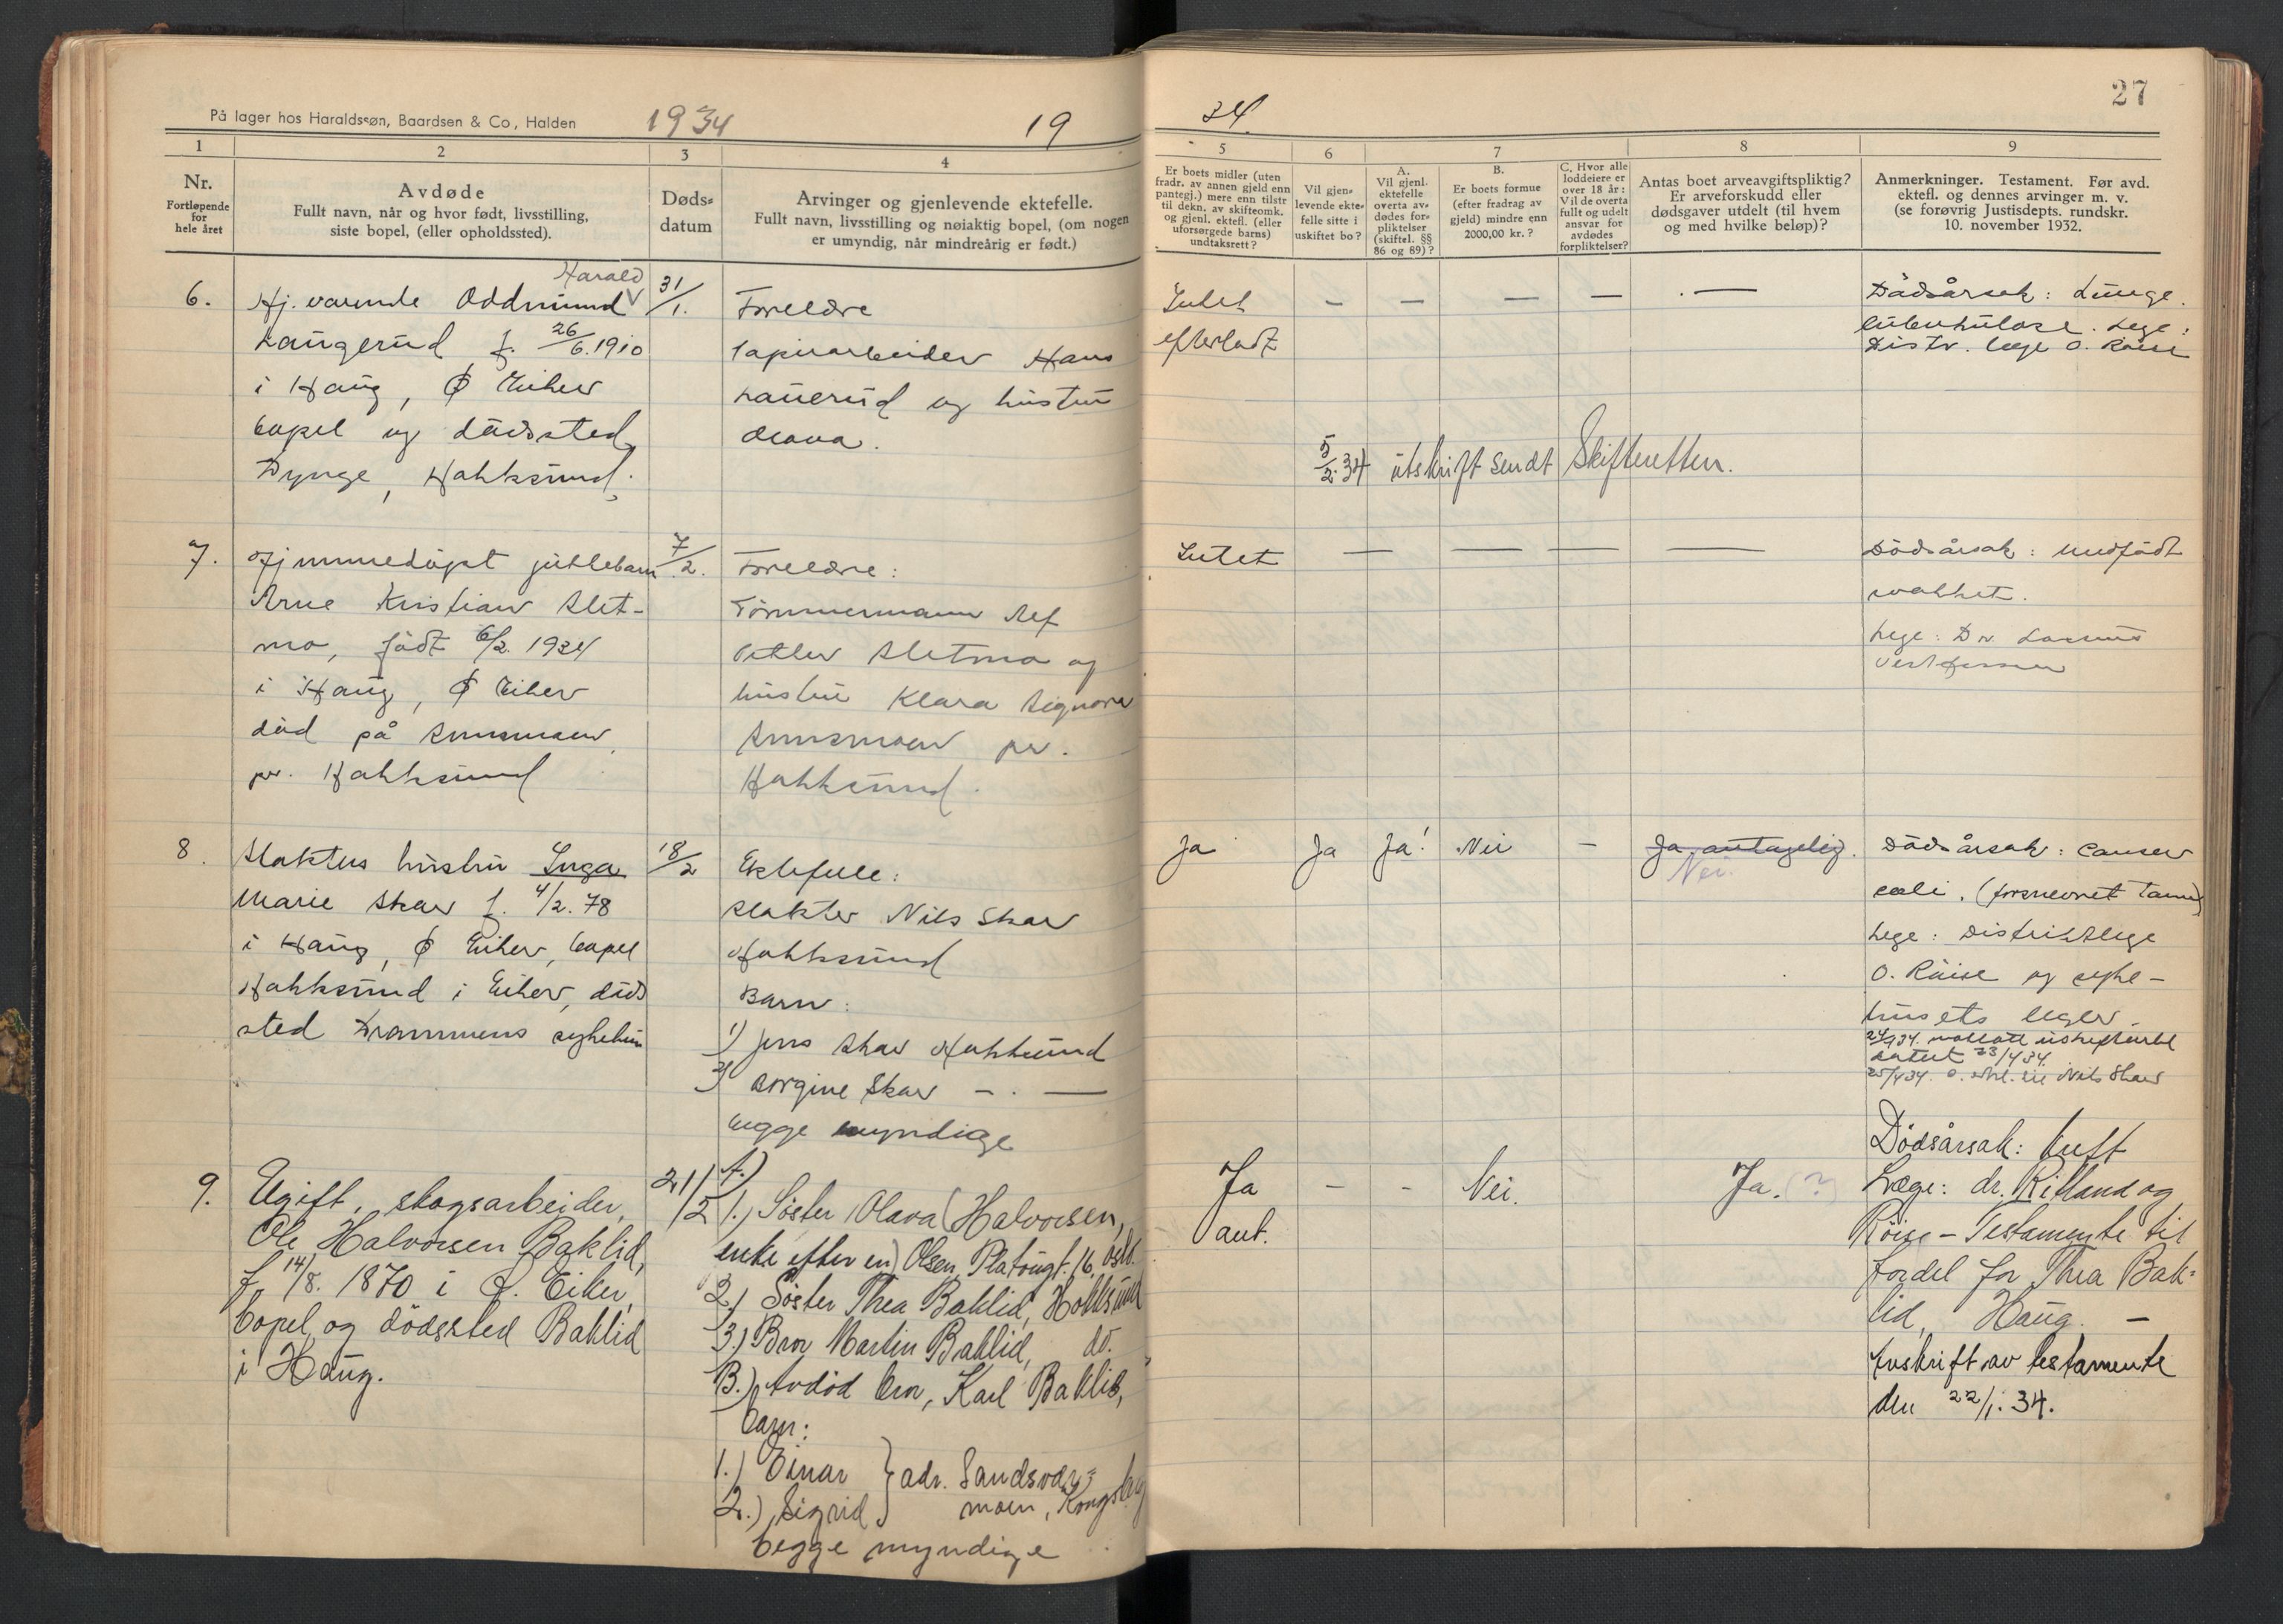 På lager hos Haraldssøn, Baardsen & Co, Halden
1934
19
34.
27
1
2
3
4
5
6
7
8
9
Nr.
Fortløpende
for
hele året
Avdøde
Fullt navn, når og hvor født, livsstilling,
siste bopel, (eller opholdssted).
Døds-
datum
Arvinger og gjenlevende ektefelle.
Fullt navn, livsstilling og nøiaktig bopel, (om nogen
er umyndig, når mindreårig er født.)
Er boets midler (uten
fradr. av annen gjeld enn
pantegj.) mere enn tilstr
til dekn. av skifteomk.
og gjenl. ektefl. (eller
uforsørgede barns)
undtaksrett?
Vil gjen-
levende ekte-
felle sitte i
uskiftet bo?
A.
Vil gjenl.
ektefelle
overta av-
dødes for-
pliktelser
(skiftel. §§
86 og 89)?
B.
Er boets formue
(efter fradrag av
gjeld) mindre enn
2000,00 kr.?
C. Hvor alle
loddeiere er
over 18 år:
Vil de overta
fullt og udelt
ansvar for
avdødes
forpliktelser?
Antas boet arveavgiftspliktig?
Er arveforskudd eller
dødsgaver utdelt (til hvem
og med hvilke beløp)?
Anmerkninger. Testament. Før avd.
ektefl. og dennes arvinger m. v.
(se forøvrig Justisdepts. rundskr.
10. november 1932.
6.
Harald
Hj. varende Oddmund V
Laugerud f. 26/6.1910
i Haug, Ø Eiker
bopel og dødssted
Dynge, Hokksund.
31/1.
Foreldre
Papirarbeider Hans
Laugerud og hustru
Olava.
Intet
efterladt
— — — — —
Dødsårsak: Lunge.
tuberkulose. Lege:
Distr. lege O. Röise
5/2.34 utskrift sendt Skifteretten.
7.
Hjemmedøpt guttebarn
Arne Kristian Slet-
mo, født 6/2. 1934
i Haug, Ø Eiker
død på Smusmoen
pr. Hokksund
7/2.
Foreldre:
Tömmermann Alf
Detlev Sletmo og
hustru Klara Signora
Smusmoen pr.
Hokksund.
Intet
— — — — —
Dödsårsak: Medfödt
svakhet.
Lege: Dr.
8.
Slakters hustru Inga
Marie Skar f. 4/2. 78
i Haug, Ø Eiker, bopel
Hokksund i Eiker, döds
sted Drammens sykehus
18/2
Ektefelle:
Slakter Nils Skar
Hokksund
Barn:
1) Jens Skar Hokksund
2) Borgine Skar — . —
begge myndige
Ja
Ja
Ja!
Nei
-
Ja antagelig.
Nei.
Dödsårsak: Cancer
coli. (forsnevret tarm)
Lege: Distriktslege
O. Röise og syke-
husets leger.
24/4 34. mottatt uskifteerkl
datert 23/4 34.
25/4 34. o. erkl. til Nils Skar
9.
Ugift, skogsarbeider,
Ole Halvorsen Baklid,
f. 14/8. 1870 i Ø. Eiker,
bopel og dödssted Baklid
i Haug.
21/2
A.)
1.) Søster Olava (Halvorsen,
enke efter en) Olsen, Platougt. 16, Oslo.
2.) Søster Thea Baklid, Hokksund
3.) Bror Martin Baklid, do.
B.) Avdöd bror, Karl Baklids,
barn:
1.) Einar } adr. Sandsvær-
2.) Sigrid } moen, Kongsberg
begge myndige
Ja
ant.
-
-
Nei.
Ja. (?)
Dödsårsak: kuft
Læge: dr. Rilland og
Röise - Testamente til
fordel for Thea Bak-
lid, Haug. —
Avskrift av testamente
den 22/1. 34.